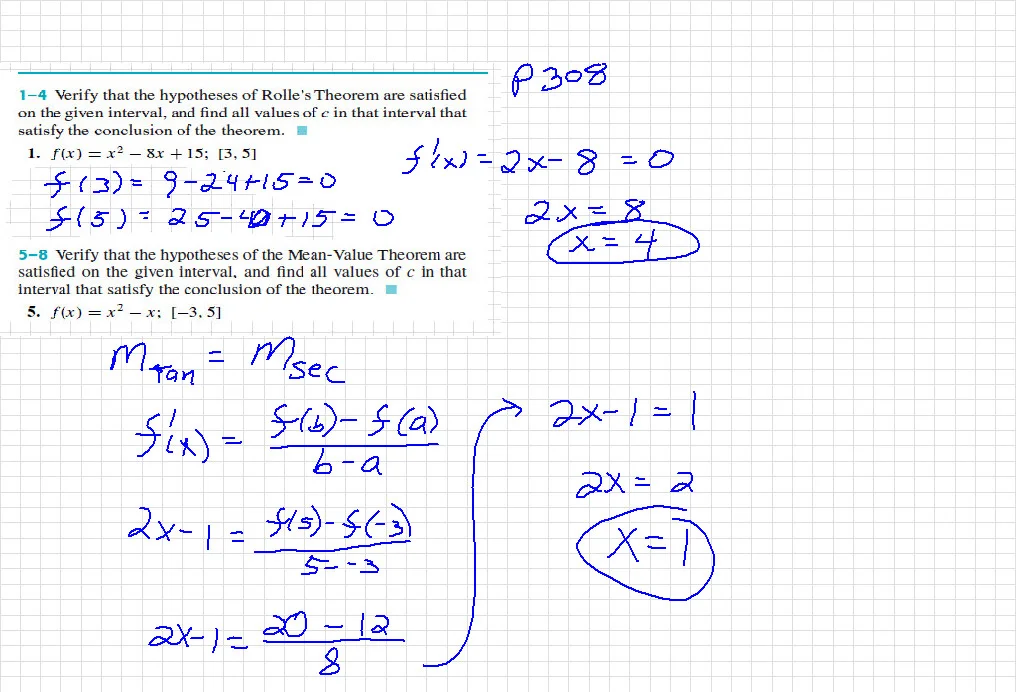 P308
1–4 Verify that the hypotheses of Rolle's Theorem are satisfied
on the given interval, and find all values of c in that interval that
satisfy the conclusion of the theorem.
1. f(x) = x² − 8x + 15; [3, 5]
f(3) = 9-24+15=0
f(5) = 25-40+15= 0
f'(x) = 2x- 8 = 0
2x = 8
x = 4
5–8 Verify that the hypotheses of the Mean-Value Theorem are
satisfied on the given interval, and find all values of c in that
interval that satisfy the conclusion of the theorem.
5. f(x) = x² − x; [−3, 5]
M Tan = M sec
f'(x) = f(b)- f(a)
b-a
2x-1 = f(5)-f(-3)
5--3
2x-1 = 20 - 12
8
2x-1 = 1
2x = 2
x = 1